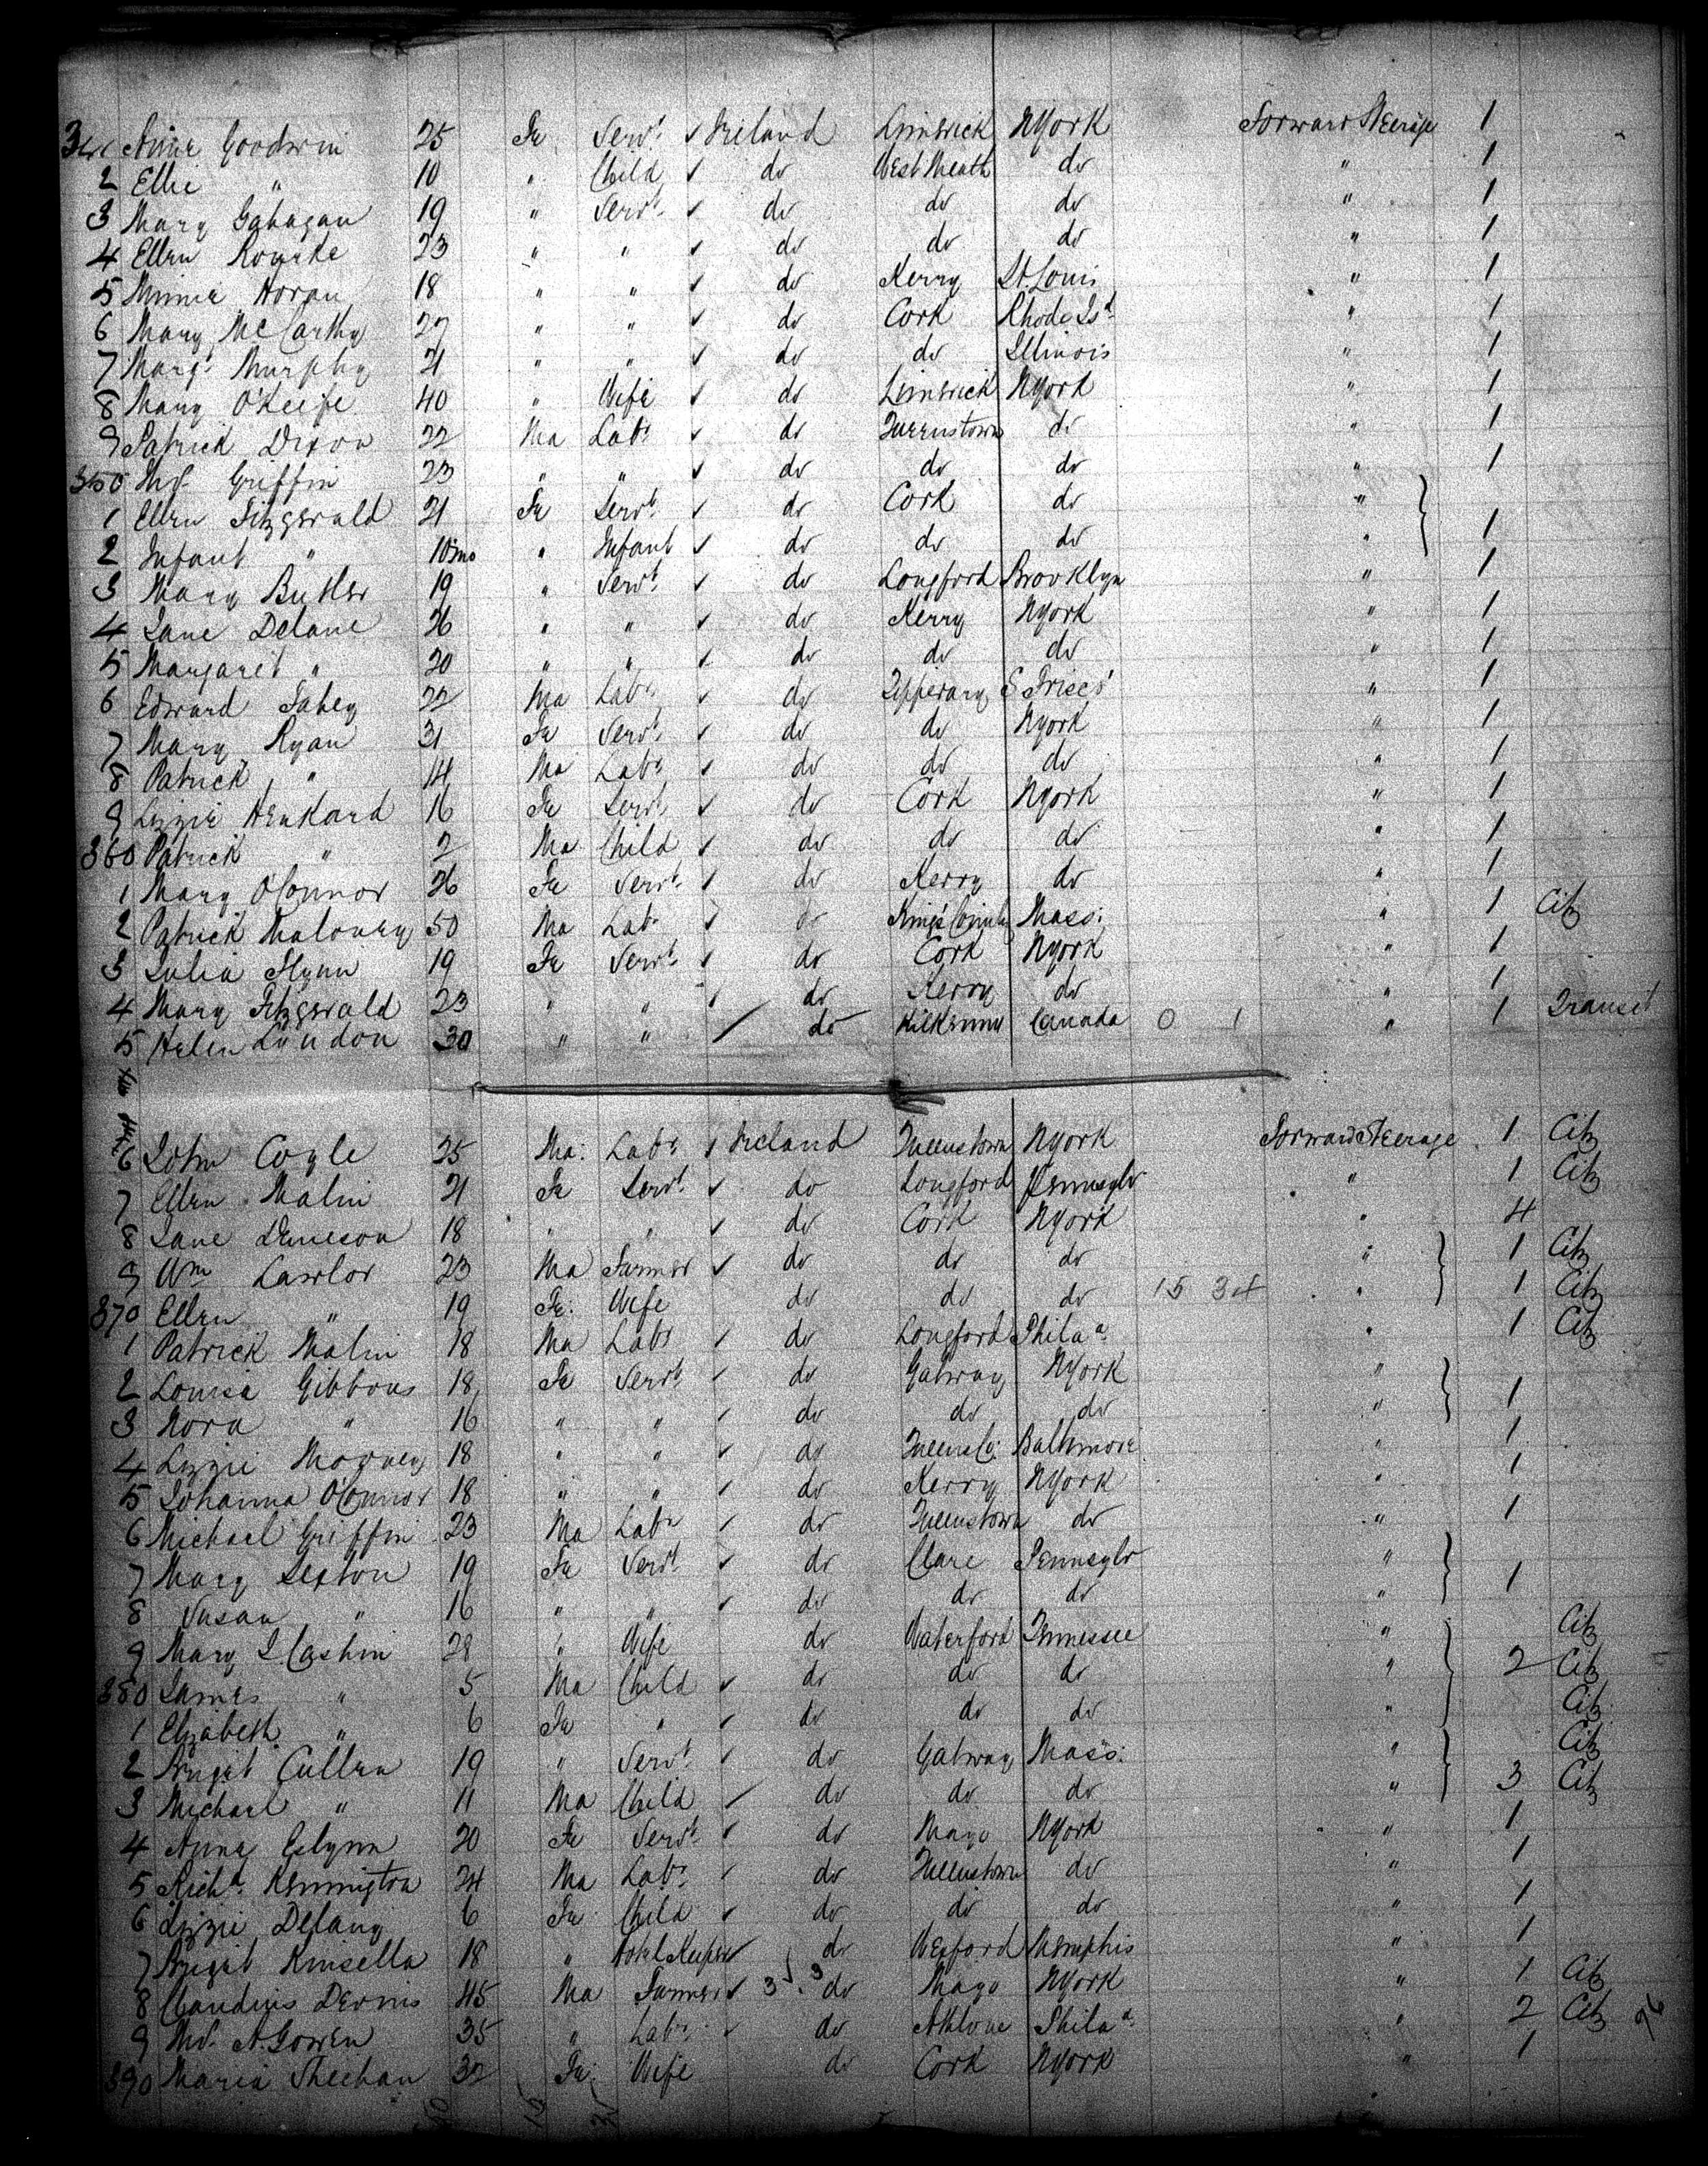 341 Annie Goodwin 25 Fe Servt ✓ Ireland Limerick NYork Forward Steerage 1
2 Ellie " 10 " Child ✓ do West Meath do " 1
3 Mary Gahagan 19 " Servt ✓ do do do " 1
4 Ellen Rourke 23 " " ✓ do do do " 1
5 Minnie Horan 18 " " ✓ do Kerry St. Louis " 1
6 Mary McCarthy 27 " " ✓ do Cork Rhode Isd " 1
7 Margt Murphy 21 " " ✓ do do Illinois " 1
8 Mary O'Keefe 40 " Wife ✓ do Limerick NYork " 1
9 Patrick Dixon 22 Ma Labr ✓ do Queenstown do " 1
350 Ml. Griffin 23 " " ✓ do do do " 1
1 Ellen Fitzgerald 21 Fe Servt ✓ do Cork do "
2 Infant " 10mo " Infant ✓ do do do " 1
3 Mary Butler 19 " Servt ✓ do Longford Brooklyn " 1
4 Jane Delane 26 " " ✓ do Kerry NYork " 1
5 Margaret " 20 " " ✓ do do do " 1
6 Edward Fahey 22 Ma Labr ✓ do Tipperary S Frisco " 1
7 Mary Ryan 31 Fe Servt ✓ do do NYork " 1
8 Patrick " 14 Ma Labr ✓ do do do " 1
9 Lizzie Henkard 16 Fe Servt ✓ do Cork NYork " 1
360 Patrick " 2 Ma Child ✓ do do do " 1
1 Mary O'Connor 26 Fe Servt ✓ do Kerry do " 1
2 Patrick Maloney 50 Ma Labr ✓ do Kings County Mass: " 1 Citz
3 Julia Flynn 19 Fe Servt ✓ do Cork NYork " 1
4 Mary Fitzgerald 23 " " ✓ do Kerry do " 1
5 Helen Lundon 30 " " / do Kilkenny Canada 0 1 " 1 Transit
6 John Coyle 25 Ma: Labr ✓ Ireland Queenstown NYork Forward Steerage 1 Citz
7 Ellen Malin 21 Fe Servt ✓ do Longford Pennsylv " 1 Citz
8 Jane Dameson 18 " " ✓ do Cork NYork " 4
9 Wm Lawlor 23 Ma Farmer ✓ do do do " 1 Citz
370 Ellen " 19 Fe: Wife do do do 15 34 " 1 Citz
1 Patrick Malin 18 Ma Labr ✓ do Longford Phila a " 1 Citz
2 Louisa Gibbons 18 Fe Servt ✓ do Galway NYork "
3 Nora " 16 " " ✓ do do do " 1
4 Lizzie 18 " " ✓ do Queens Co: Baltimore " 1
5 Johanna O'Connor 18 " " ✓ do Kerry NYork " 1
6 Michael Griffin 23 Ma Labr ✓ do Queenstown do " 1
7 Mary Sexton 19 Fe Servt ✓ do Clare Pennsylv "
8 Susan " 16 " " ✓ do do do " 1
9 Mary J. Cashin 28 " Wife do Waterford Tennessee " Citz
380 James " 5 Ma Child ✓ do do do " 2 Citz
1 Elizabeth " 6 Fe " ✓ do do do " Citz
2 Bridget Cullen 19 " Servt ✓ do Galway Mass: " Citz
3 Michael " 11 Ma Child ✓ do do do " 3 Citz
4 Anne Glynn 20 Fe Servt ✓ do Mayo NYork " 1
5 Richd Kennington 24 Ma Labr ✓ do Queenstown do " 1
6 Lizzie Delany 6 Fe Child ✓ do do do " 1
7 Bridget Kinsella 18 " Hotel Keeper ✓ do Wexford Memphis " 1
8 Claudius Dennis 45 Ma Farmer ✓ 3 3 do Mayo NYork " 1 Citz
9 Ml. A. Gowen 35 " Labr ✓ do Athlone Phila a " 2 Citz 96
390 Maria Sheehan 32 Fe: Wife do Cork NYork " 1